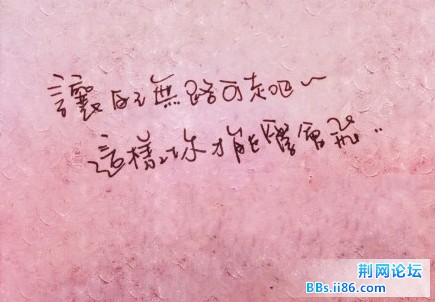 讓自己無路可走吧~
這樣你才能學會飛..
荆网论坛
BBs.ii86.com